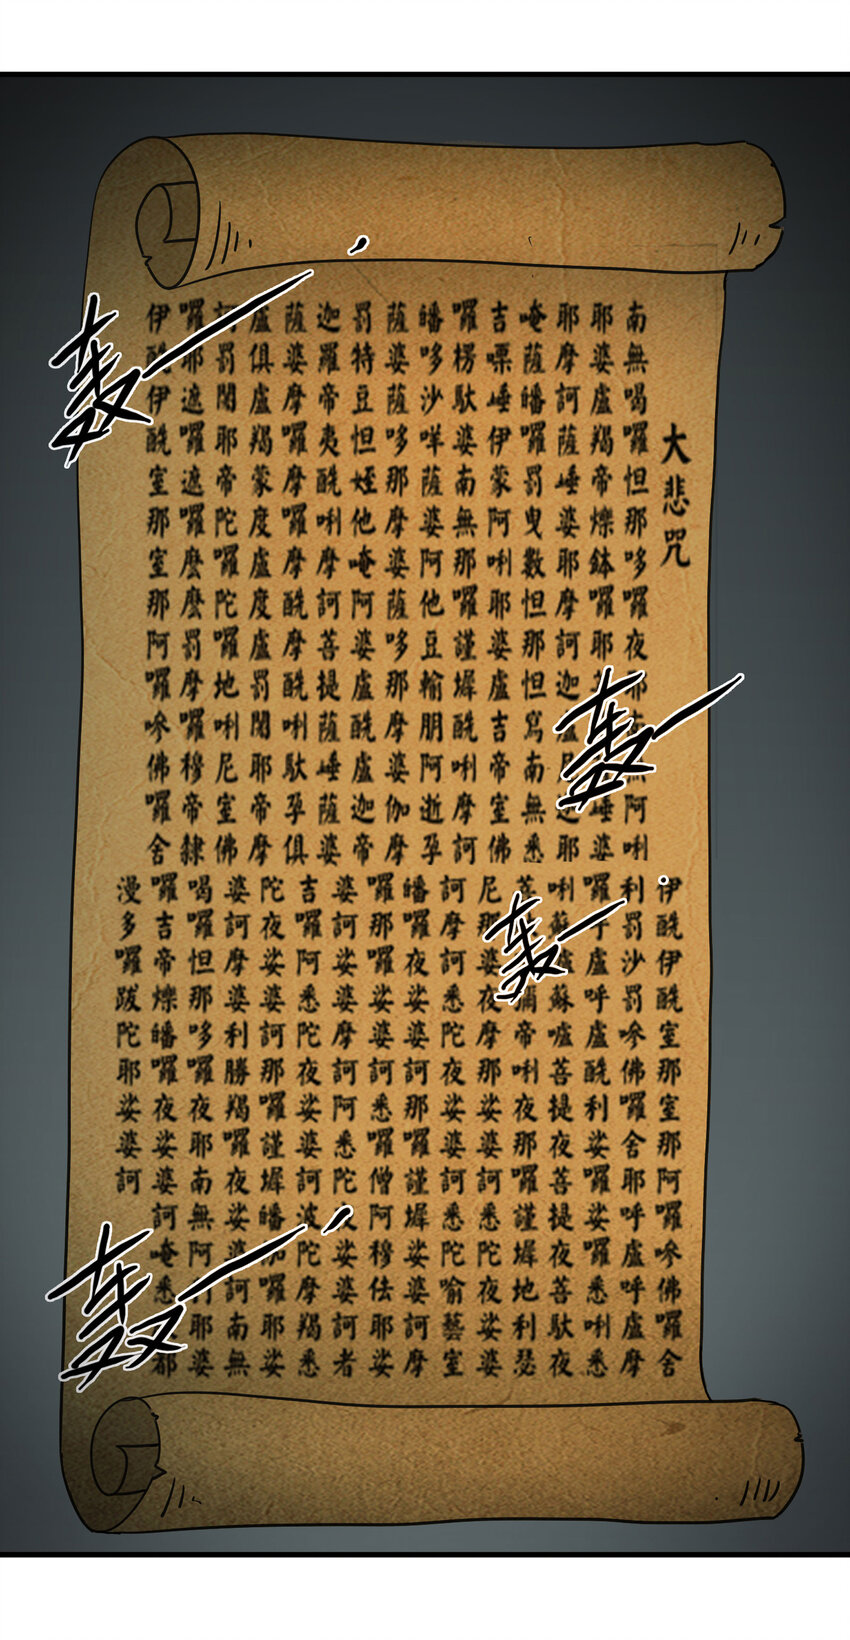 大悲咒
南無喝囉怛那哆囉夜耶南無阿唎
耶婆盧羯帝爍鉢囉耶埵婆
耶摩訶薩埵婆耶摩訶迦盧尼迦耶
唵薩皤囉罰曳數怛那怛寫南無悉
吉㗚埵伊蒙阿唎耶婆盧吉帝室佛
囉楞馱婆南無那囉謹墀醯唎摩訶
皤哆沙咩薩婆阿他豆輸朋阿逝孕
薩婆薩哆那摩婆薩哆那摩婆伽摩
罰特豆怛姪他唵阿婆盧醯盧迦帝
迦羅帝夷醯唎摩訶菩提薩埵薩婆
薩婆摩囉摩囉摩醯摩醯唎馱孕俱
盧俱盧羯蒙度盧度盧罰闍耶帝摩
訶罰闍耶帝陀囉陀囉地唎尼室佛
囉耶遮囉遮囉麼麼罰摩囉穆帝隸
伊醯伊醯室那室那阿囉嘇佛囉舍
伊醯伊醯室那室那阿囉嘇佛囉舍
利罰沙罰嘇佛囉舍耶呼盧呼盧摩
囉呼盧呼盧醯利娑囉娑囉悉唎悉
唎蘇嚧蘇嚧菩提夜菩提夜菩馱夜
菩彌帝唎夜那囉謹墀地利瑟
尼那婆夜摩那娑婆訶悉陀夜娑婆
訶摩訶悉陀夜娑婆訶悉陀喻藝室
皤囉夜娑婆訶那囉謹墀娑婆訶摩
囉那囉娑婆訶悉囉僧阿穆佉耶娑
婆訶娑婆摩訶阿悉陀夜娑婆訶者
吉囉阿悉陀夜娑婆訶波陀摩羯悉
陀夜娑婆訶那囉謹墀皤伽囉耶娑
婆訶摩婆利勝羯囉夜娑婆訶南無
喝囉怛那哆囉夜耶南無阿唎耶婆
囉吉帝爍皤囉夜娑婆訶唵悉都
漫多囉跋陀耶娑婆訶
轰
轰
轰
轰